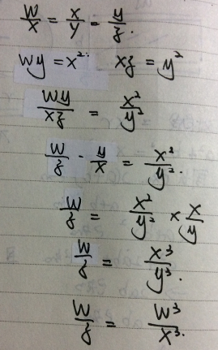 W/x = x/y = y/z.
wy = x². xz = y²
wy/xz = x²/y²
w/z · y/x = x²/y².
w/z = x²/y² × x/y
w/z = x³/y³.
w/z = w³/x³.